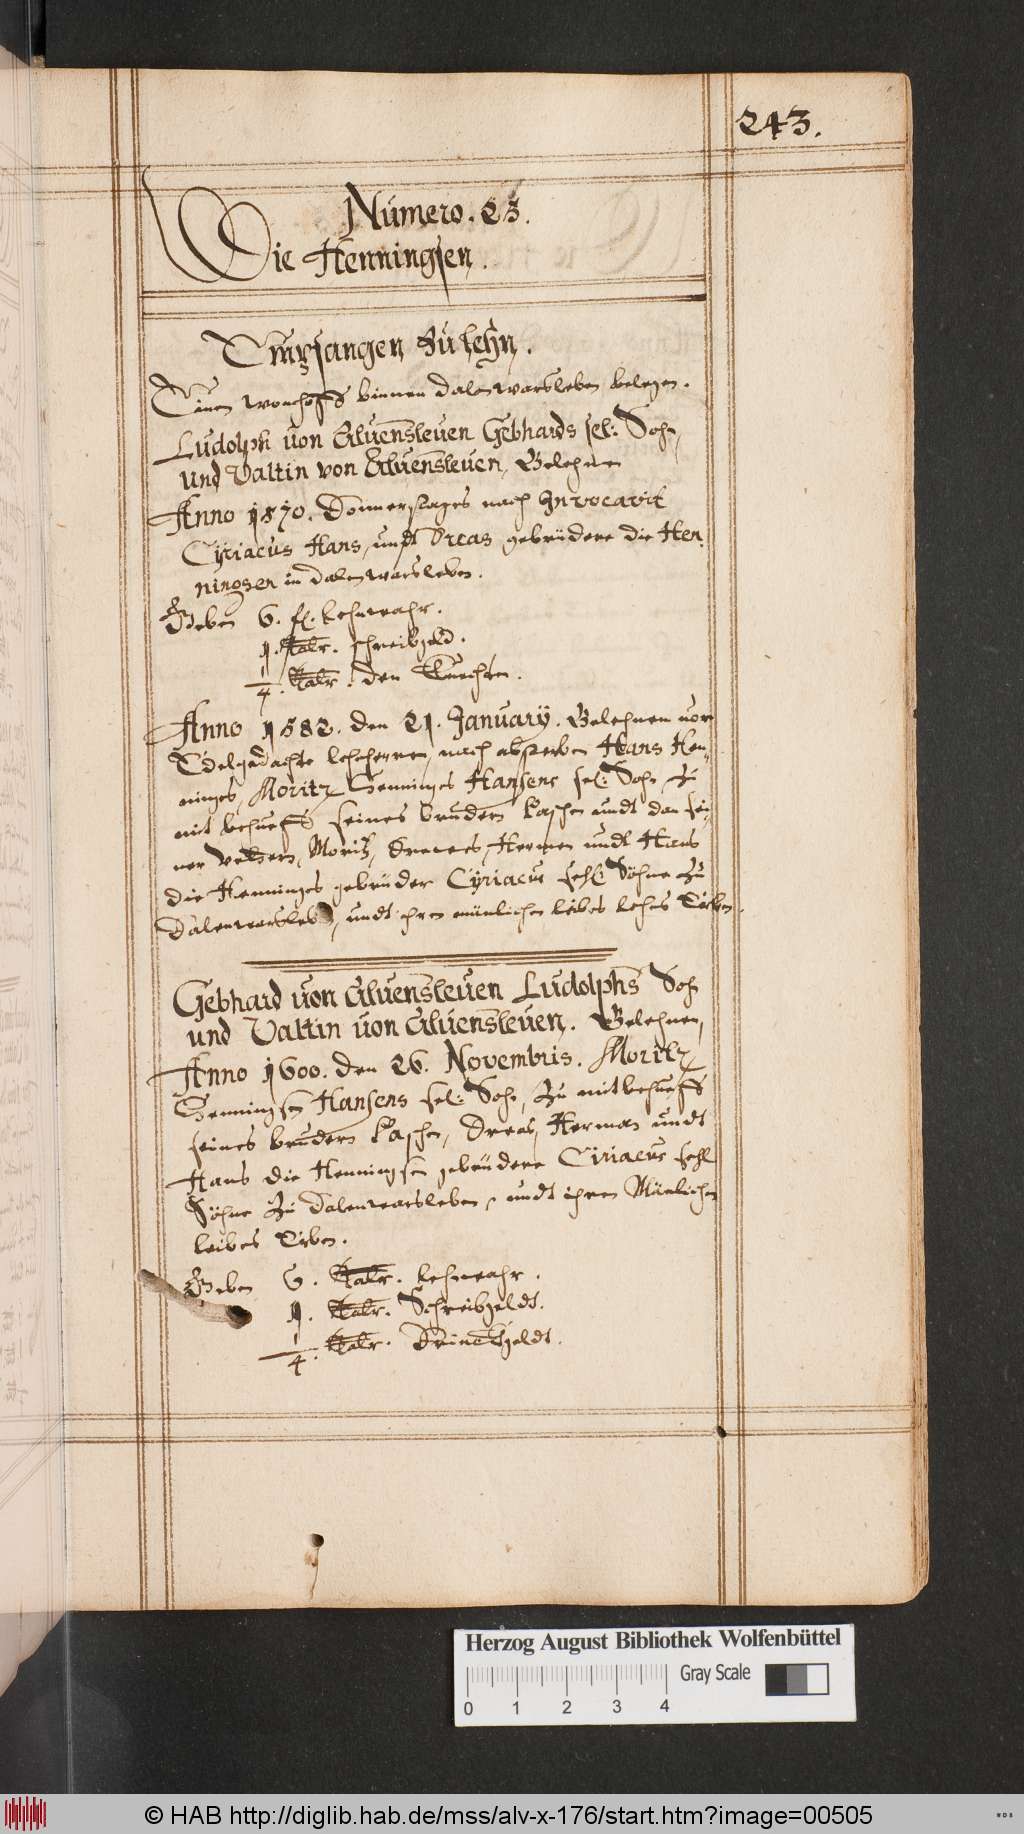 243.
Numero. 23.
Die Henningsen.
Empfangen Zu lehn.
Einen wonhoff binnen dalenwarsleben belegen.
Ludolph von Alvensleven Gebhards sel: Sohn,
und Valtin von Alvensleven, Belehnen
Anno 1570. Donnerstages nach Invocavit
Cyriacus Hans, undt Dreas gebrüdere die Hen,
ningsen in dalenwarsleben.
Geben 6. fl. Lehnwahr.
1. Talr. schreibgeld.
1/4. Talr. den Knechten.
Anno 1582. den 21. January. Belehnen vor
Edelgedachte lehnherren, nach absterben Hans Hen,
ninges, Moritz Henninges Hansens sel: Sohn Zu
mit behueff seines brudern Paschen undt dan sei,
ner Vettern, Moritz, Drewes, Hermen undt Hans
die Henninges gebrüder Cyriacus sehl Söhne Zu
Dalenwarsleben, undt ihren mänlichen leibes lehns Erben.
Gebhard von Alvensleven Ludolphs Sohn
und Valtin von Alvensleven. Belehnen,
Anno 1600. den 26. Novembris. Moritz
Henningsen Hansens sel: Sohn, Zu mitbehueff
seines brudern Paschen, Dreas, Herman undt
Hans die Henningsen gebrüdere Ciriacus sehl
Söhne Zu Dalenwarsleben, undt ihren Mänlichen
leibes Erben.
Geben 6. Talr. Lehnwahr.
1. Talr. Schreibgeldt.
1/4. Talr. Drinckgeldt.
Herzog August Bibliothek Wolfenbüttel
Gray Scale
0 1 2 3 4
© HAB http://diglib.hab.de/mss/alv-x-176/start.htm?image=00505